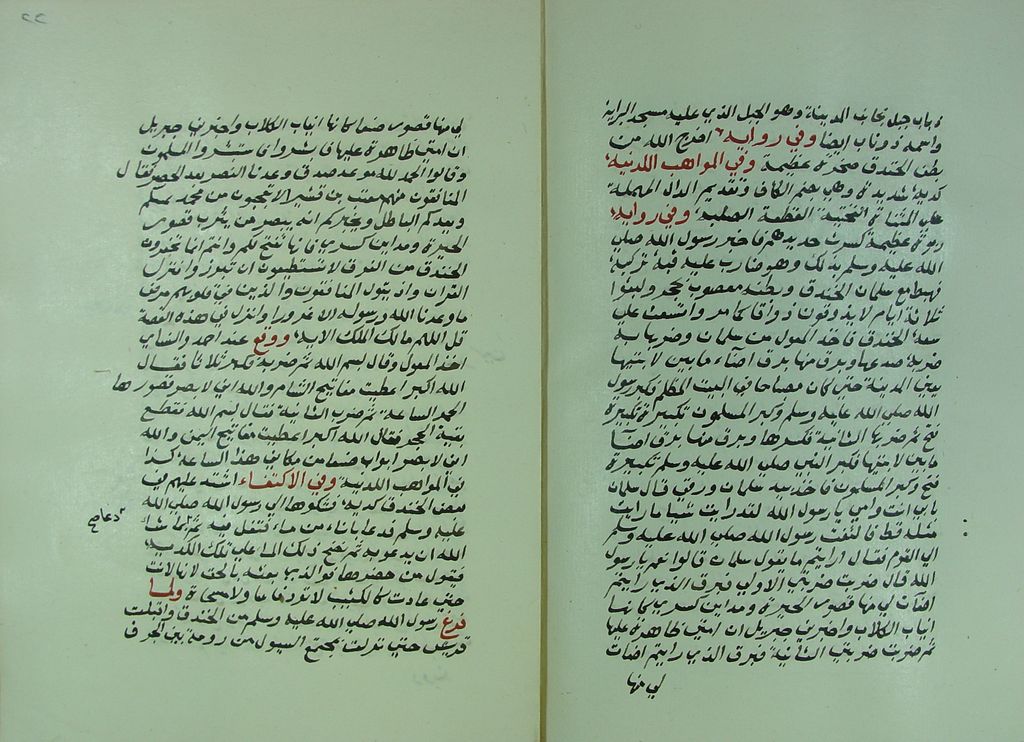 ذباب جبل بجانب المدينة وهو الجبل الذي عليه مسجد الراية
واسمه ذوناب ايضا وفي رواية اخرج الله من
بطن الخندق صخرة عظيمة وفي المواهب اللدنيه
كدية شديدة وهي بضم الكاف وتقديم الدال المهملة
على المثناة التحتية القطعة الصلبة وفي رواية
عظيمة كسرت حديدهم فاخبر رسول الله صلى
الله عليه وسلم بذلك وهو ضارب عليه قبة تركية
فهبط مع سلمان الخندق وبطنه معصوب بحجر ولبثوا
ثلاثة ايام لا يذوقون ذواقا كما مر واتسعت على
الخندق فاخذ المعول من سلمان وضربها به
ضربة صدعها وبرق منها برق اضاء ما بين لابتيها
يعني المدينة حتى كان مصباحا في البيت المظلم فكبر رسول
الله صلى الله عليه وسلم وكبر المسلمون تكبيرة
فتح ثم ضربها الثانية فكسرها وبرق منها برق اضا
ما بين لابتيها فكبر النبي صلى الله عليه وسلم تكبيرة
فتح وكبر المسلمون فاخذ بيد سلمان ورقي قال سلمان
بابي انت وامي يا رسول الله لقد رايت شيئا ما رايت
مثله قط فالتفت رسول الله صلى الله عليه وسلم
الي القوم فقال ارايتم ما يقول سلمان قالوا نعم يا رسول
الله قال ضربت ضربتي الاولي فبرق الذي رايتم
اضات لي منها قصور الحيرة ومداين كسري كانها
انياب الكلاب واخبرني جبريل ان امتي ظاهرة عليها
ثم ضربت ضربتي الثانية فبرق الذي رايتم اضات
لي منها
٢٢
لي منها قصور صنعا كانها انياب الكلاب واخبرني جبريل
ان امتي ظاهرة عليها المسلمون
وقالوا الحمد لله موعد صدق وعدنا النصر بعد الحصر فقال
المنافقون منهم معتب بن قشير الا تعجبون من محمد يمنيكم
ويعدكم الباطل ويخبركم انه يبصر من يثرب قصور
الحيرة ومداين كسري وانها تفتح لكم وانتم انما تحفرون
الخندق من الفرق لا تستطيعون ان تبرزوا فنزل
القران واذ يقول المنافقون والذين في قلوبهم مرض
ما وعدنا الله ورسوله الا غرورا وانزل في هذه القصة
قل اللهم مالك الملك الاية ووقع عند احمد والنساي
اخذ المعول وقال بسم الله ثم ضربه فكسر ثلاثا فقال
الله اكبر اعطيت مفاتيح الشام والله اني لابصر قصورها
الحمر الساعة ثم ضرب الثانية فقال بسم الله فقطع
بقية الحجر فقال الله اكبر اعطيت مفاتيح اليمن والله
اني لابصر ابواب صنعا من مكاني هذا الساعة كذا
في المواهب اللدنية وفي الاكتفاء اشتد عليهم في
بعض الخندق كدية فشكوها الي رسول الله صلى الله
عليه وسلم فدعا باناء من ماء فتفل فيه ثم دعا بما شا
دعا صح
الله ان يدعو به ثم نضح ذلك الما على تلك الكدية
فيقول من حضرها فوالذي بعثه بالحق لانهالت
حتى عادت كالكثيب لا ترد فاسا ولا مسحاة ولما
فرغ رسول الله صلى الله عليه وسلم من الخندق واقبلت
قريش حتى نزلت بمجتمع السيول من رومة بين الجرف